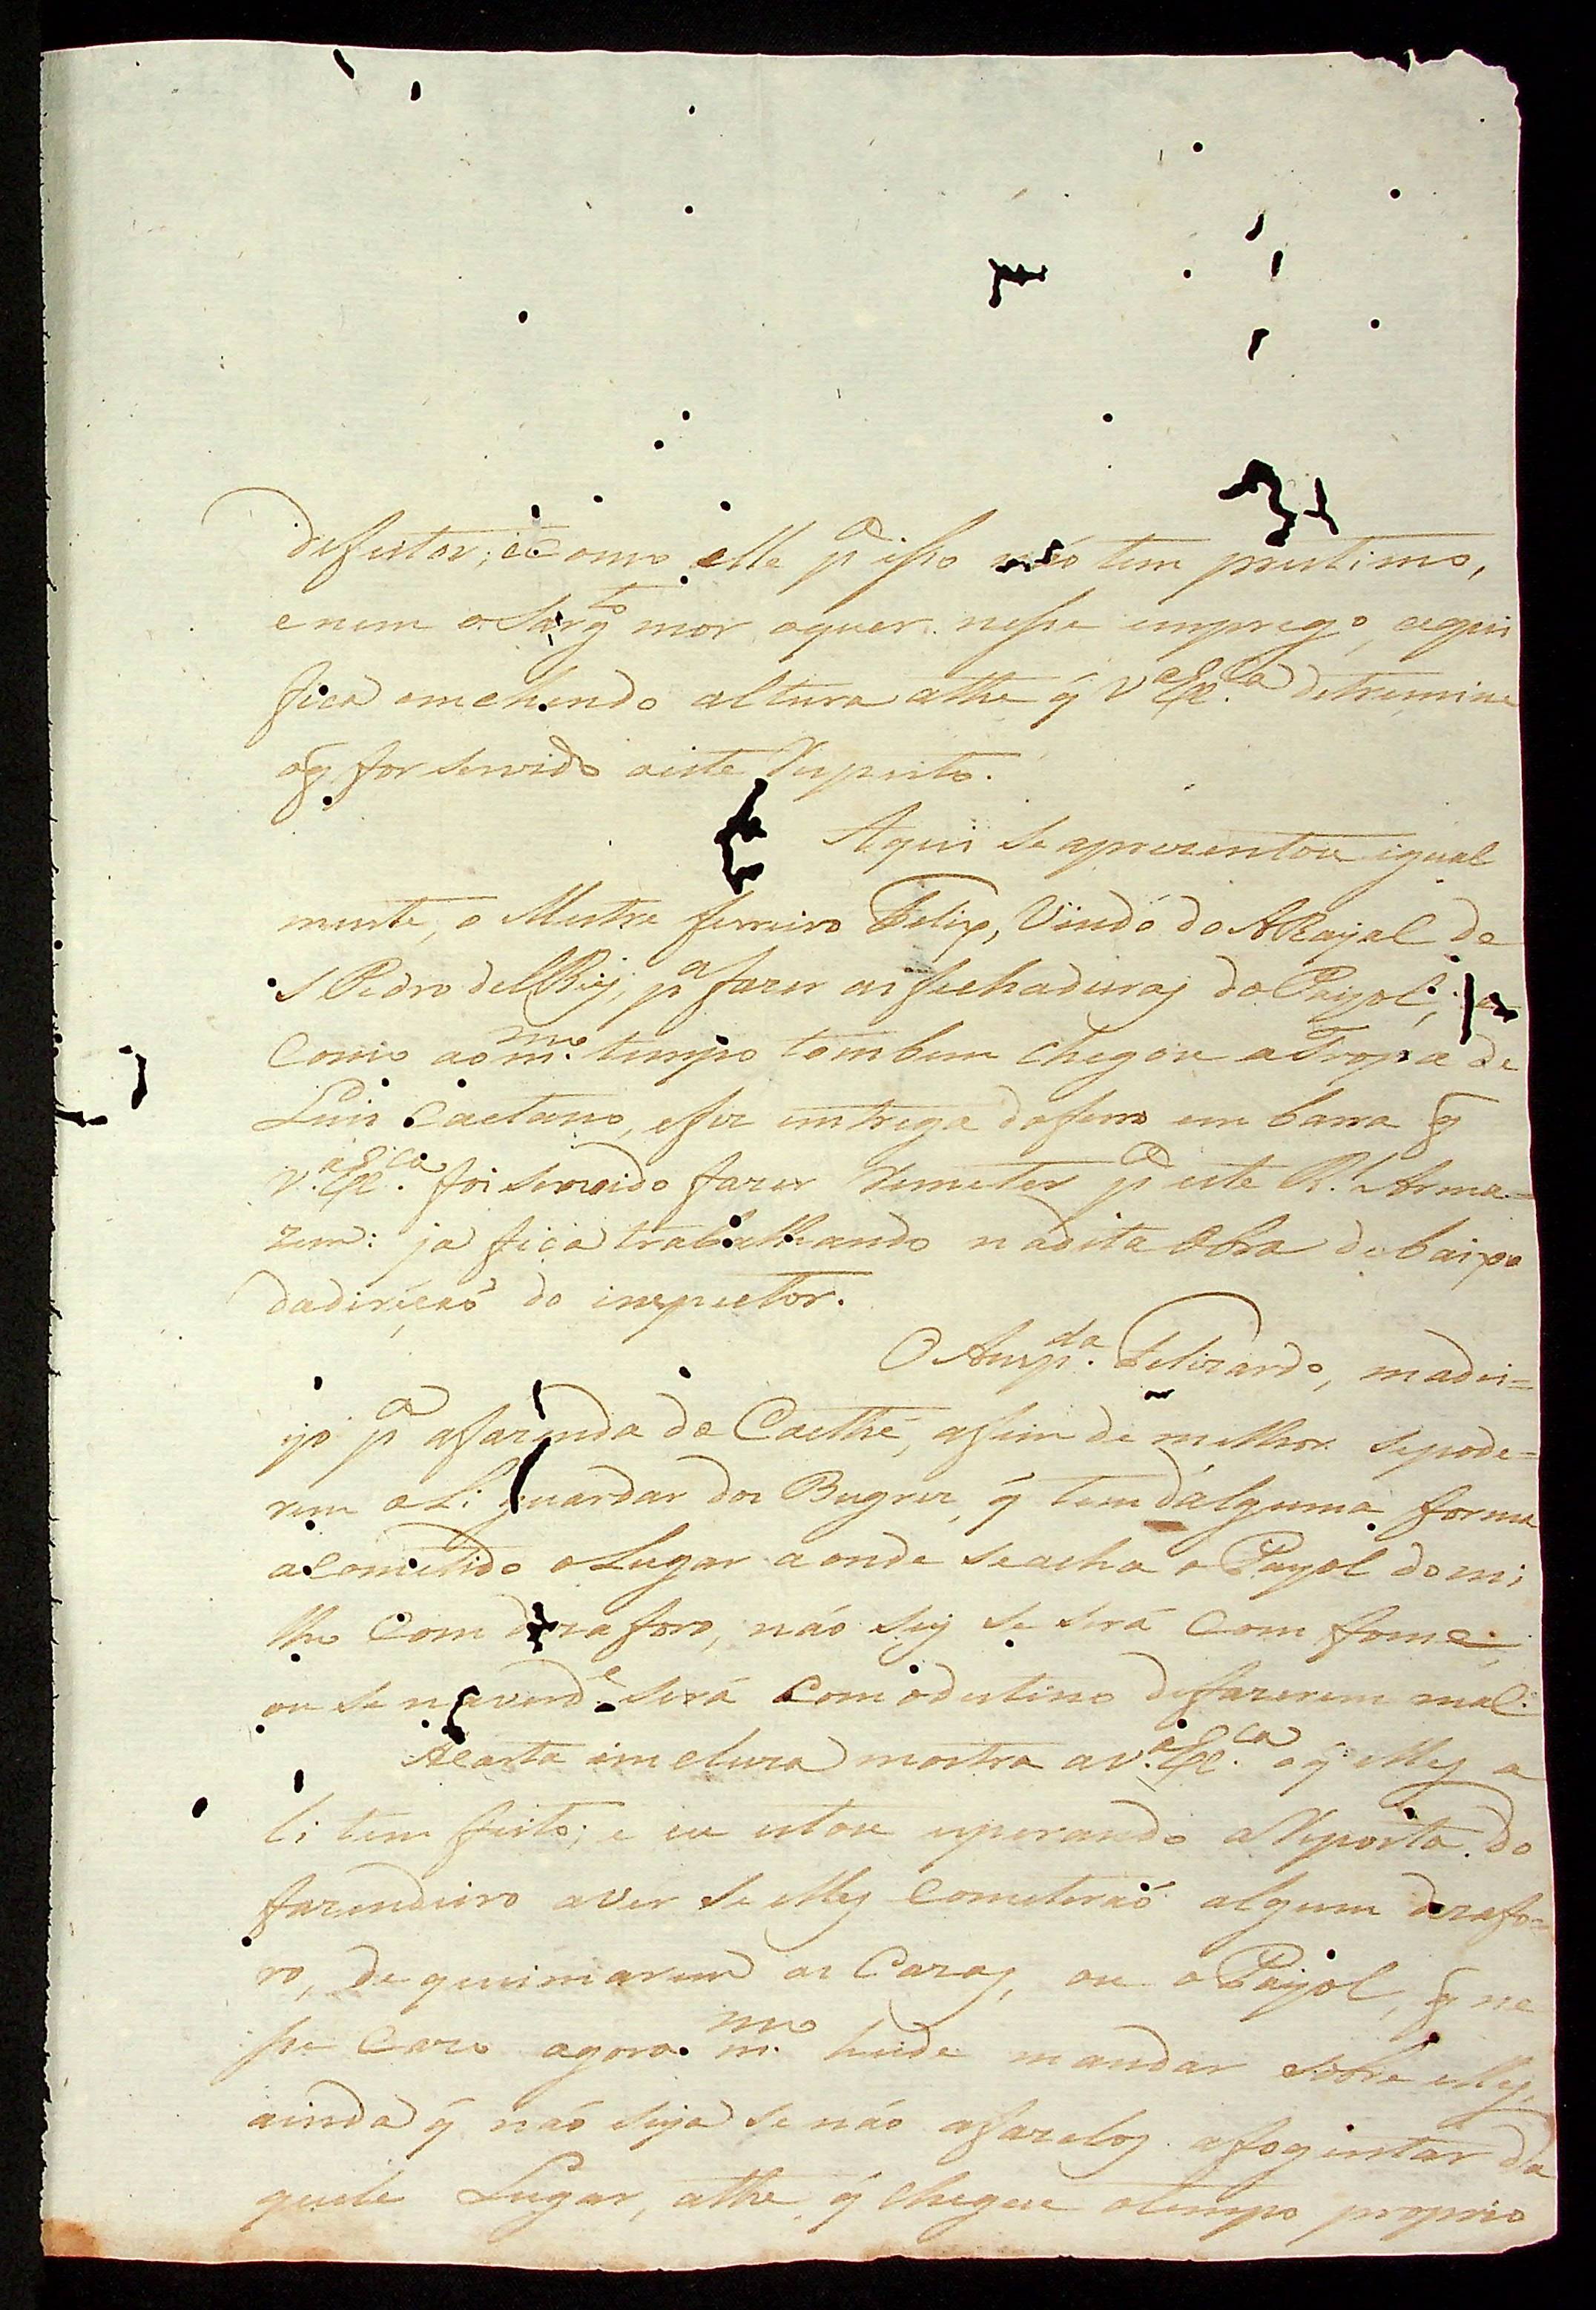 defeitos; e como elle pª isso não tem prestimo,
e nem o Sargto mor o quer nesse emprego, e aqui
fica emchendo altura athe q̃ Vª Exca detremine
o q̃ for servido a iste Respeito.
Aqui se aprezentou igual
mente, o Mestre ferreiro Felix, Vindo do ARayal de
S Pedro del Rey, pª fazer as fechaduras do Payol; e
Como ao mmo tempo tambem chegou a Tropa de
Luis Caetano, e fes emtrega do ferro em barra q̃
V.ª Exca foi servido fazer Remeter pª este Rl Arma=
zem: ja fica trabalhando na dita Obra debaixo
da direicaõ do inspector.
O Anspda Felizardo, madei=
yo pª a fazenda de Caethé, afim de melhor se pode=
rem a Li guardar dos Bugres, q̃ tem d'alguma forma
acometido o Lugar aonde se acha o Payol do mi
lho Com dezaforo, não sey se será Com fome,
ou se na verde será Com o destino de fazerem mal.
A Carta imcluza mostra a V.ª Exca o q̃ elles a
li tem feito; e eu estou esperando a Reposta do
fazendeiro a ver se elles Cometeraõ algum dezafo=
ro, de queimarem as Cazas, ou o Payol, q̃ ne
sse Cazo agora mmo heide mandar sobre elles,
ainda q̃ não seja se não a fazelos afogentar da
quele Lugar, athe q̃ chegue o tempo proprio